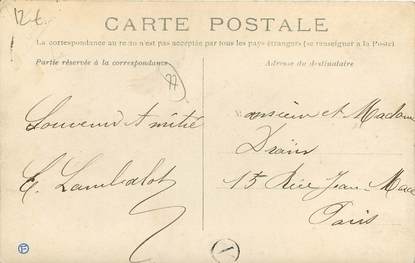 12€
CARTE POSTALE
La correspondance au recto n'est pas acceptée par tous les pays étrangers (se renseigner à la Poste)
Partie réservée à la correspondance
Adresse du destinataire
77
Souvenir Amitié
E. Lambalot
Monsieur et Madame
Drain
15 Rue Jean Mace
Paris